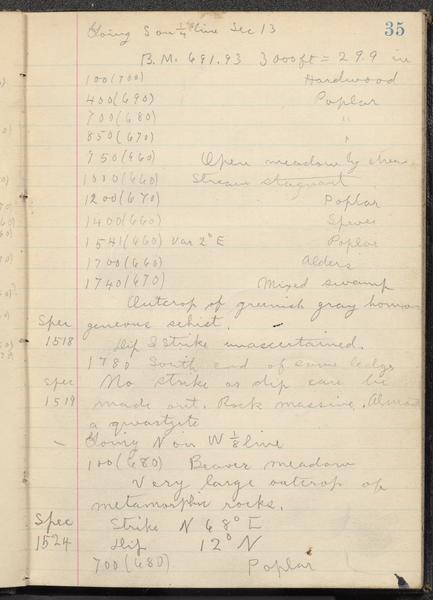 35
Going S on 1/4 line Sec 13
B.M. 691.93 3000ft = 29.9 in
100 (700) Hardwood
400 (690) Poplar
700 (680) "
850 (670) "
950 (660) Open meadow by
1000 (660) Stream stagnant
1200 (670) Poplar
1400 (660) Spruce
1541 (660) Var 2° E Poplar
1700 (660) Alders
1740 (670) Mixed swamp
Outcrop of greenish gray homo
Spec geneous schist.
1518 Dip & Strike unascertained.
1780 South end of same ledge
Spec No strike or dip can be
1519 made out. Rock massive. Almost
a quartzite
– Going N on W 1/8 line
100 (680) Beaver meadow
Very large outcrop of
metamorphic rocks.
Spec Strike N 68° E
1524 Dip 12° N
700 (680) Poplar